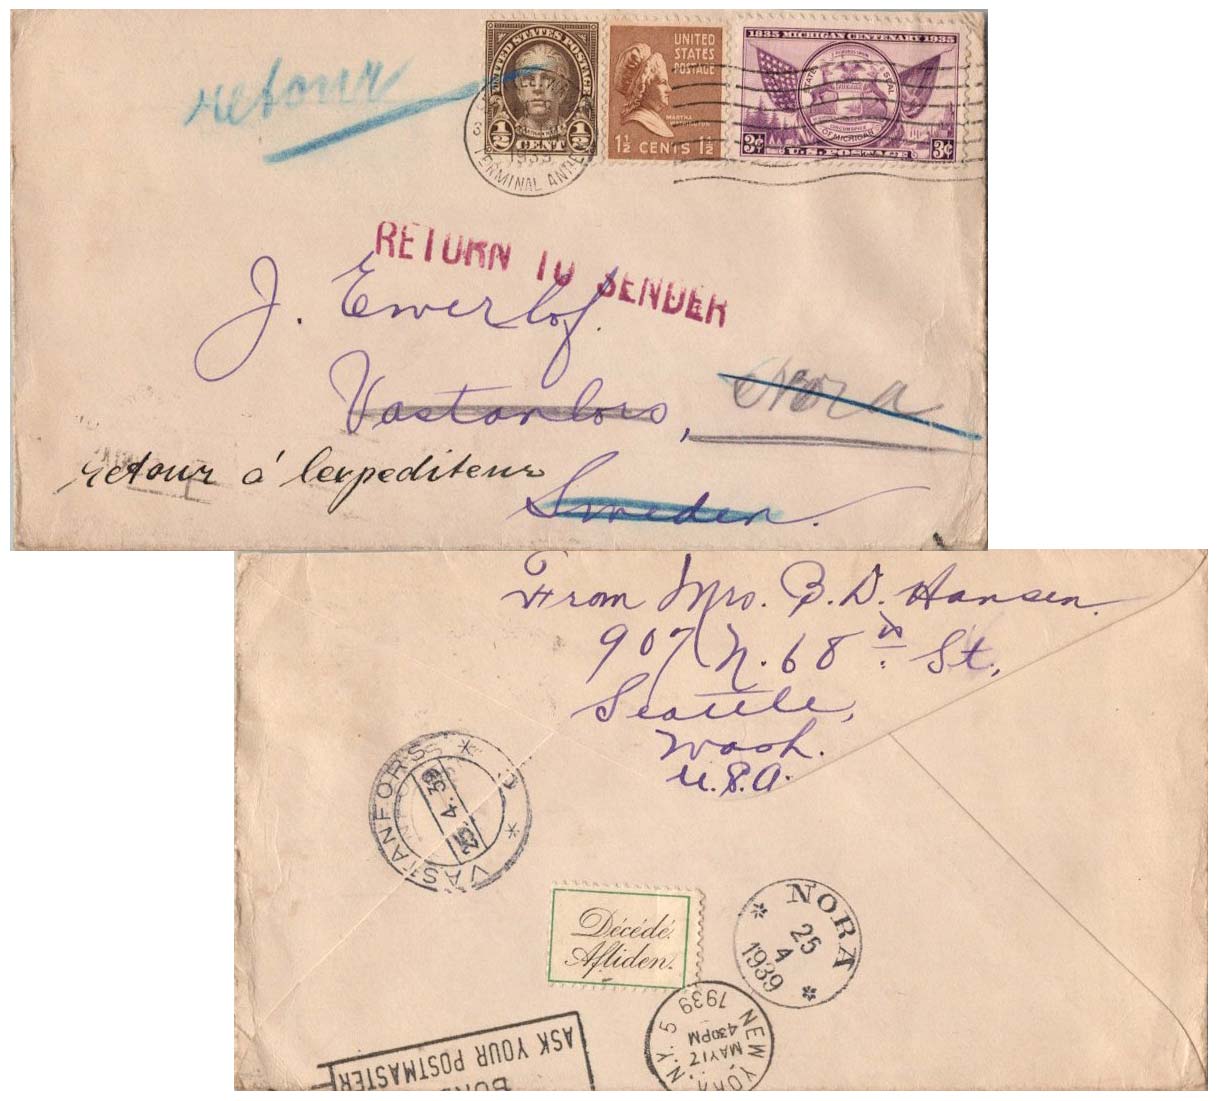 retour
UNITED STATES POSTAGE
1/2 CENT 1/2
UNITED
STATES
POSTAGE
MARTHA
WASHINGTON
1½ CENTS 1½
1835 MICHIGAN CENTENARY 1935
STATE SEAL
OF MICHIGAN
3¢ U.S. POSTAGE 3¢
1939
TERMINAL ANNEX
RETURN TO SENDER
J. Ewerlof.
Vastanfors, Nora
retour á lexpediteur
Sweden.
From Mrs. B. D. Hansen
907 N. 68 th St.,
Seattle,
Wash.
U.S.A.
VÄSTANFORS
25. 4. 39
Décédé.
Afliden.
NORA
25
4
1939
NEW YORK, N.Y. 5
MAY 17
430PM
1939
ASK YOUR POSTMASTER